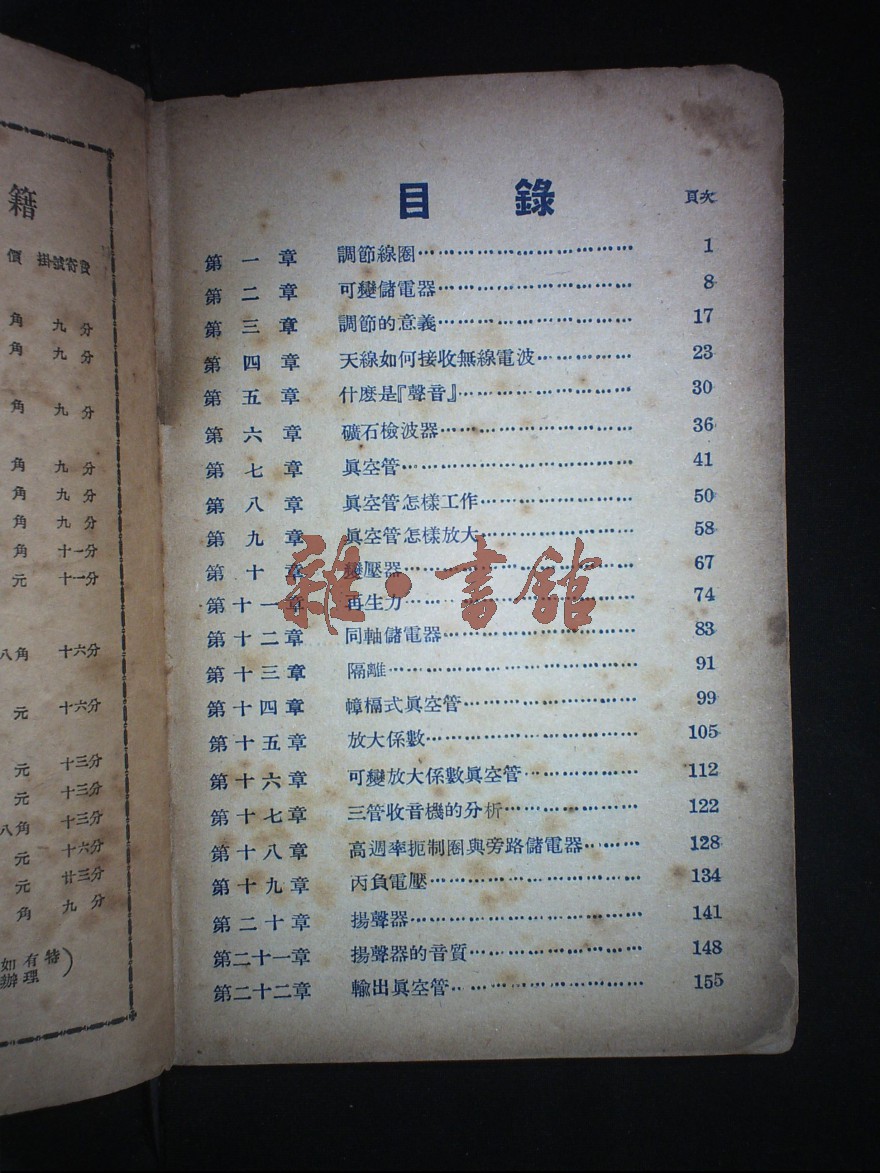 籍
價 掛號寄費
角 九分
角 九分
角 九分
角 九分
角 九分
角 九分
角 十一分
元 十一分
八角 十六分
元 十六分
元 十三分
元 十三分
八角 十三分
元 十六分
元 廿三分
角 九分
如有特
辦理)
目錄
頁次
第一章 調節線圈 1
第二章 可變儲電器 8
第三章 調節的意義 17
第四章 天線如何接收無線電波 23
第五章 什麽是『聲音』 30
第六章 礦石檢波器 36
第七章 眞空管 41
第八章 眞空管怎樣工作 50
第九章 眞空管怎樣放大 58
第十章 變壓器 67
第十一章 再生力 74
第十二章 同軸儲電器 83
第十三章 隔離 91
第十四章 幛楅式眞空管 99
第十五章 放大係數 105
第十六章 可變放大係數眞空管 112
第十七章 三管收音機的分析 122
第十八章 高週率扼制圈與旁路儲電器 128
第十九章 丙負電壓 134
第二十章 揚聲器 141
第二十一章 揚聲器的音質 148
第二十二章 輸出眞空管 155
雜·書館